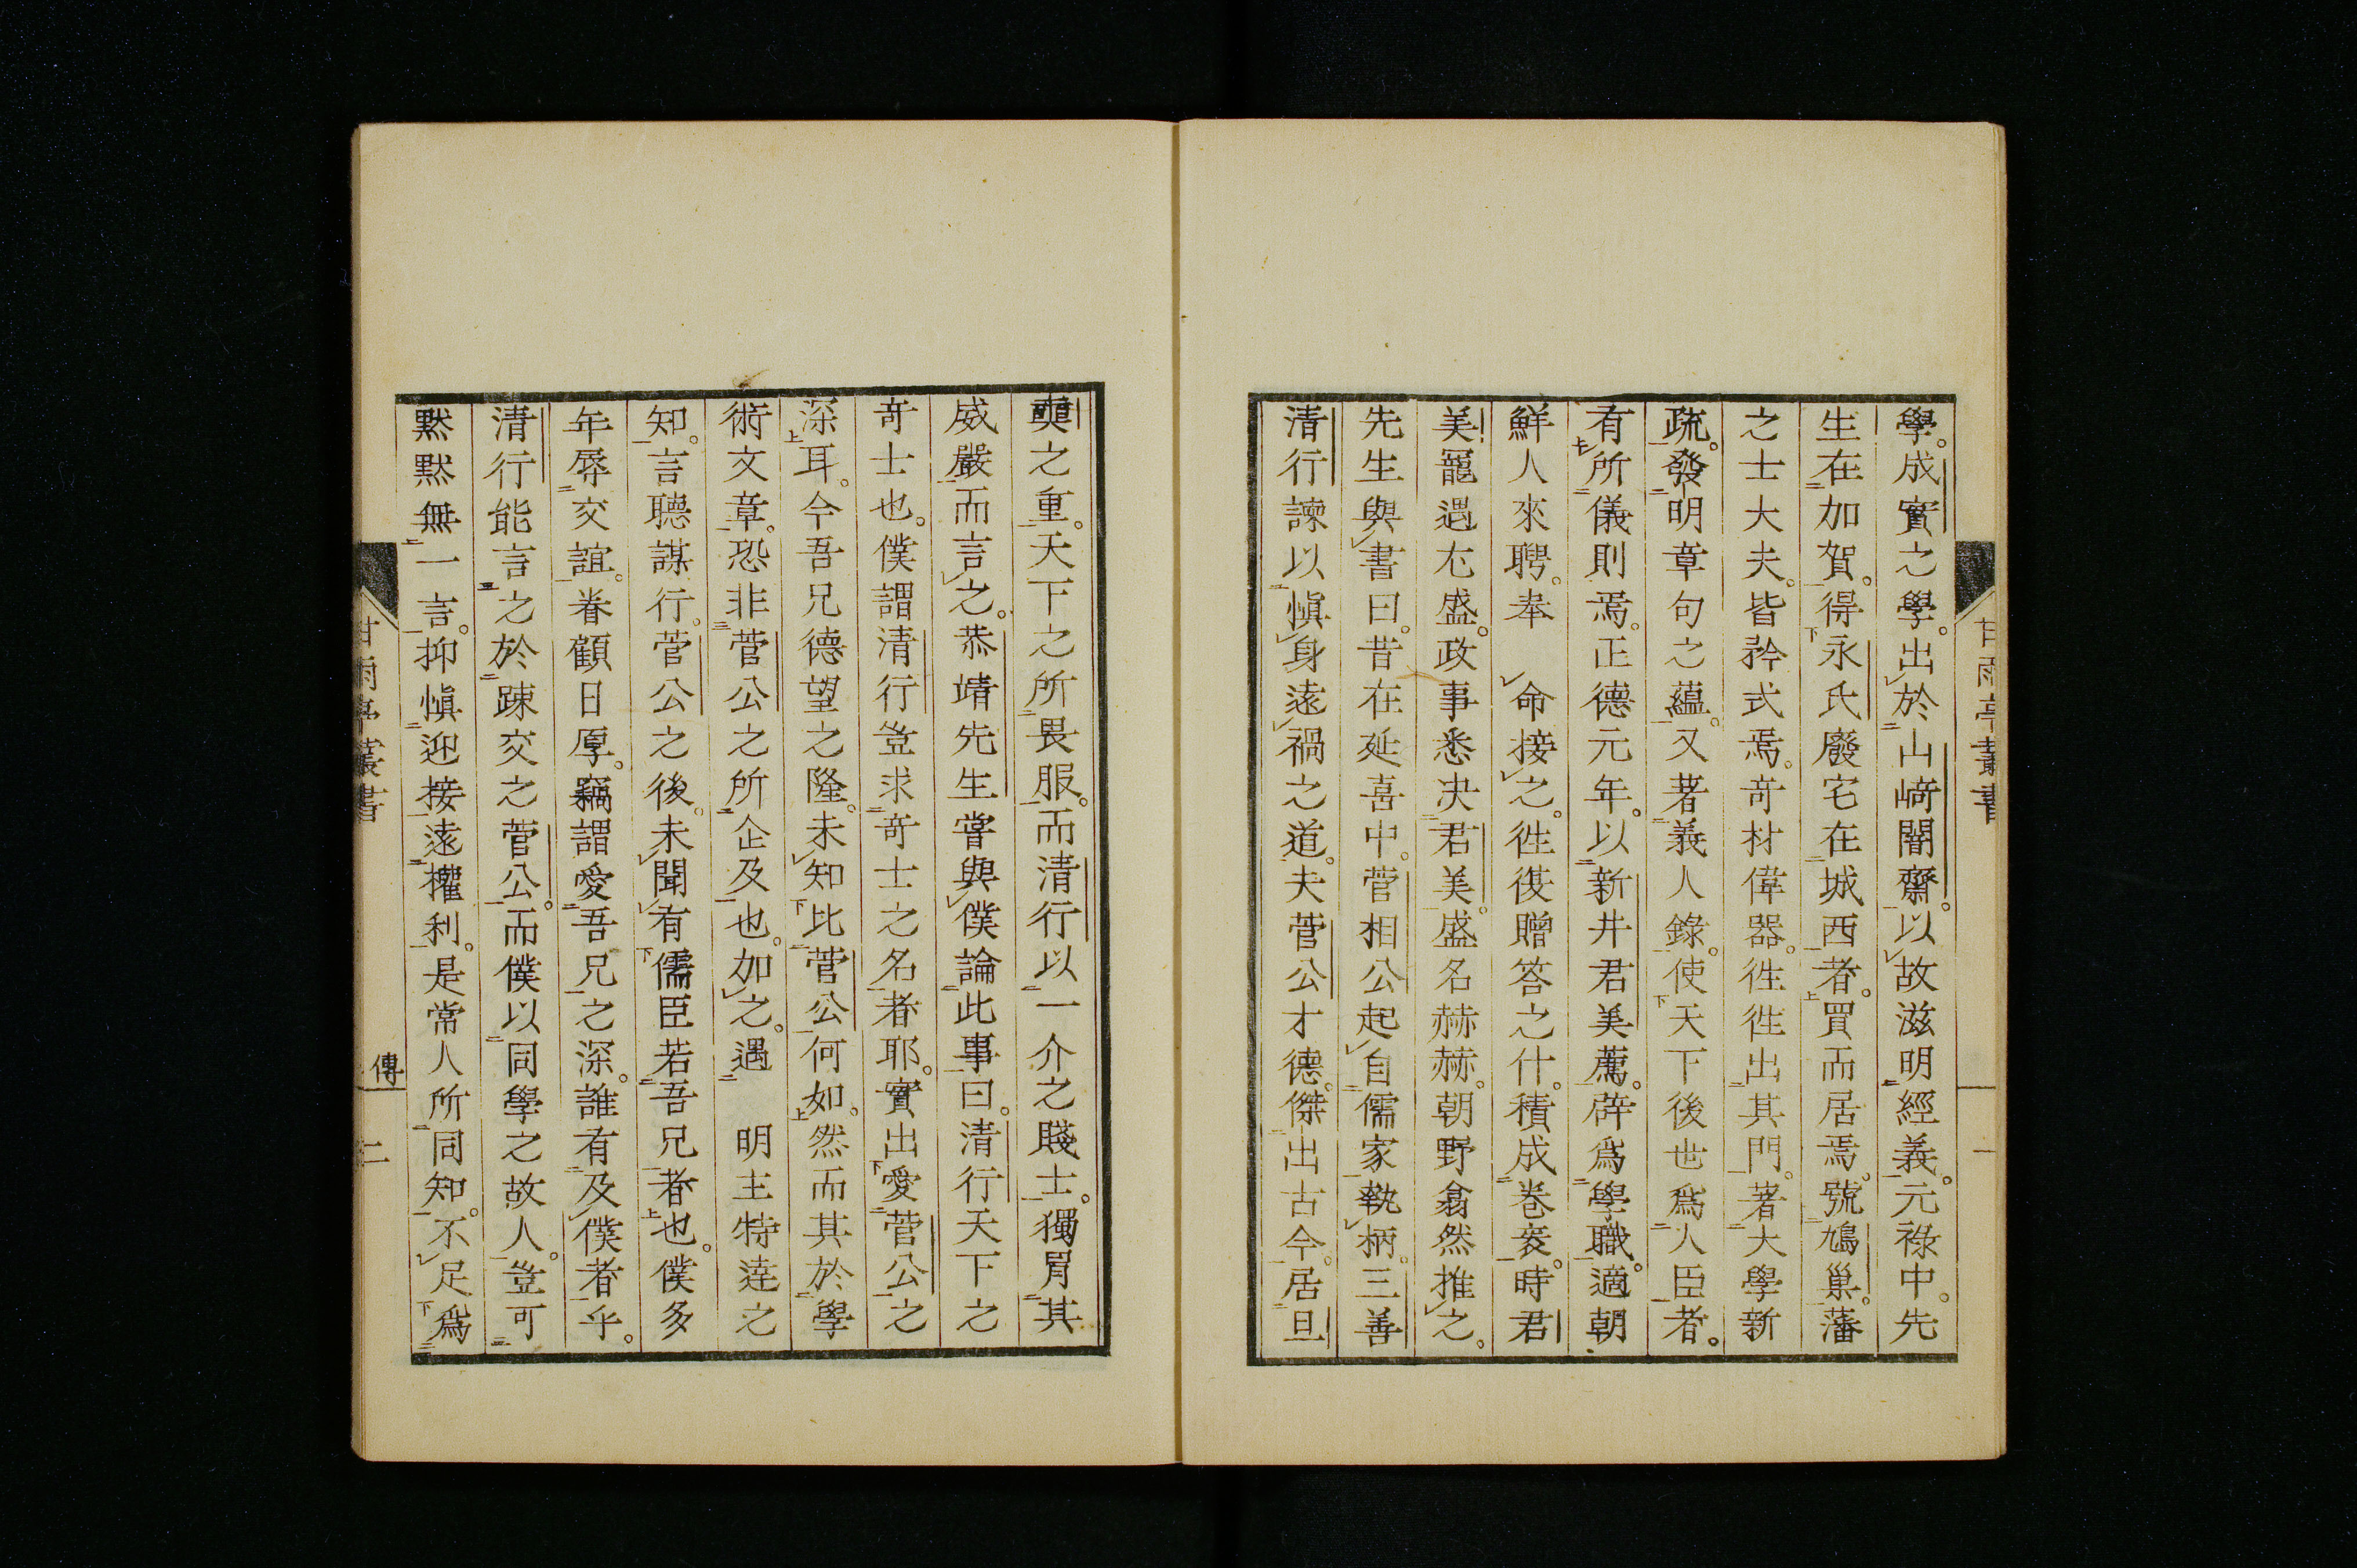 學。成實之學。出於山﨑闇齋。以故滋明經義。元祿中。先
生在加賀。得永氏廢宅在城西者。買而居焉。號鳩巢。藩
之士大夫。皆矜式焉。奇材偉器。往往出其門。著大學新
疏。發明章句之蘊。又著義人錄。使天下後世爲人臣者。
有所儀則焉。正德元年。以新井君美薦。辟爲學職。適朝
鮮人來聘。奉 命接之。往復贈答之什。積成卷袠。時君
美寵遇尤盛。政事悉決君美。盛名赫赫。朝野翕然推之。
先生與書曰。昔在延喜中。菅相公起自儒家執柄。三善
清行諫以愼身遠禍之道。夫菅公才德。傑出古今。居旦
奭之重。天下之所畏服。而清行以一介之賤士。獨冐其
威嚴而言之。恭靖先生嘗與僕論此事曰。清行天下之
奇士也。僕謂清行豈求奇士之名者耶。實出愛菅公之
深耳。今吾兄德望之隆。未知比菅公何如。然而其於學
術文章。恐非菅公之所企及也。加之。遇 明主特達之
知。言聽謀行。菅公之後。未聞有儒臣若吾兄者也。僕多
年辱交誼。眷顧日厚。竊謂愛吾兄之深。誰有及僕者乎。
清行能言之於踈交之菅公。而僕以同學之故人。豈可
黙黙無一言。抑愼迎接遠權利。是常人所同知。不足爲
甘雨亭叢書
一
甘雨亭叢書
傳
二